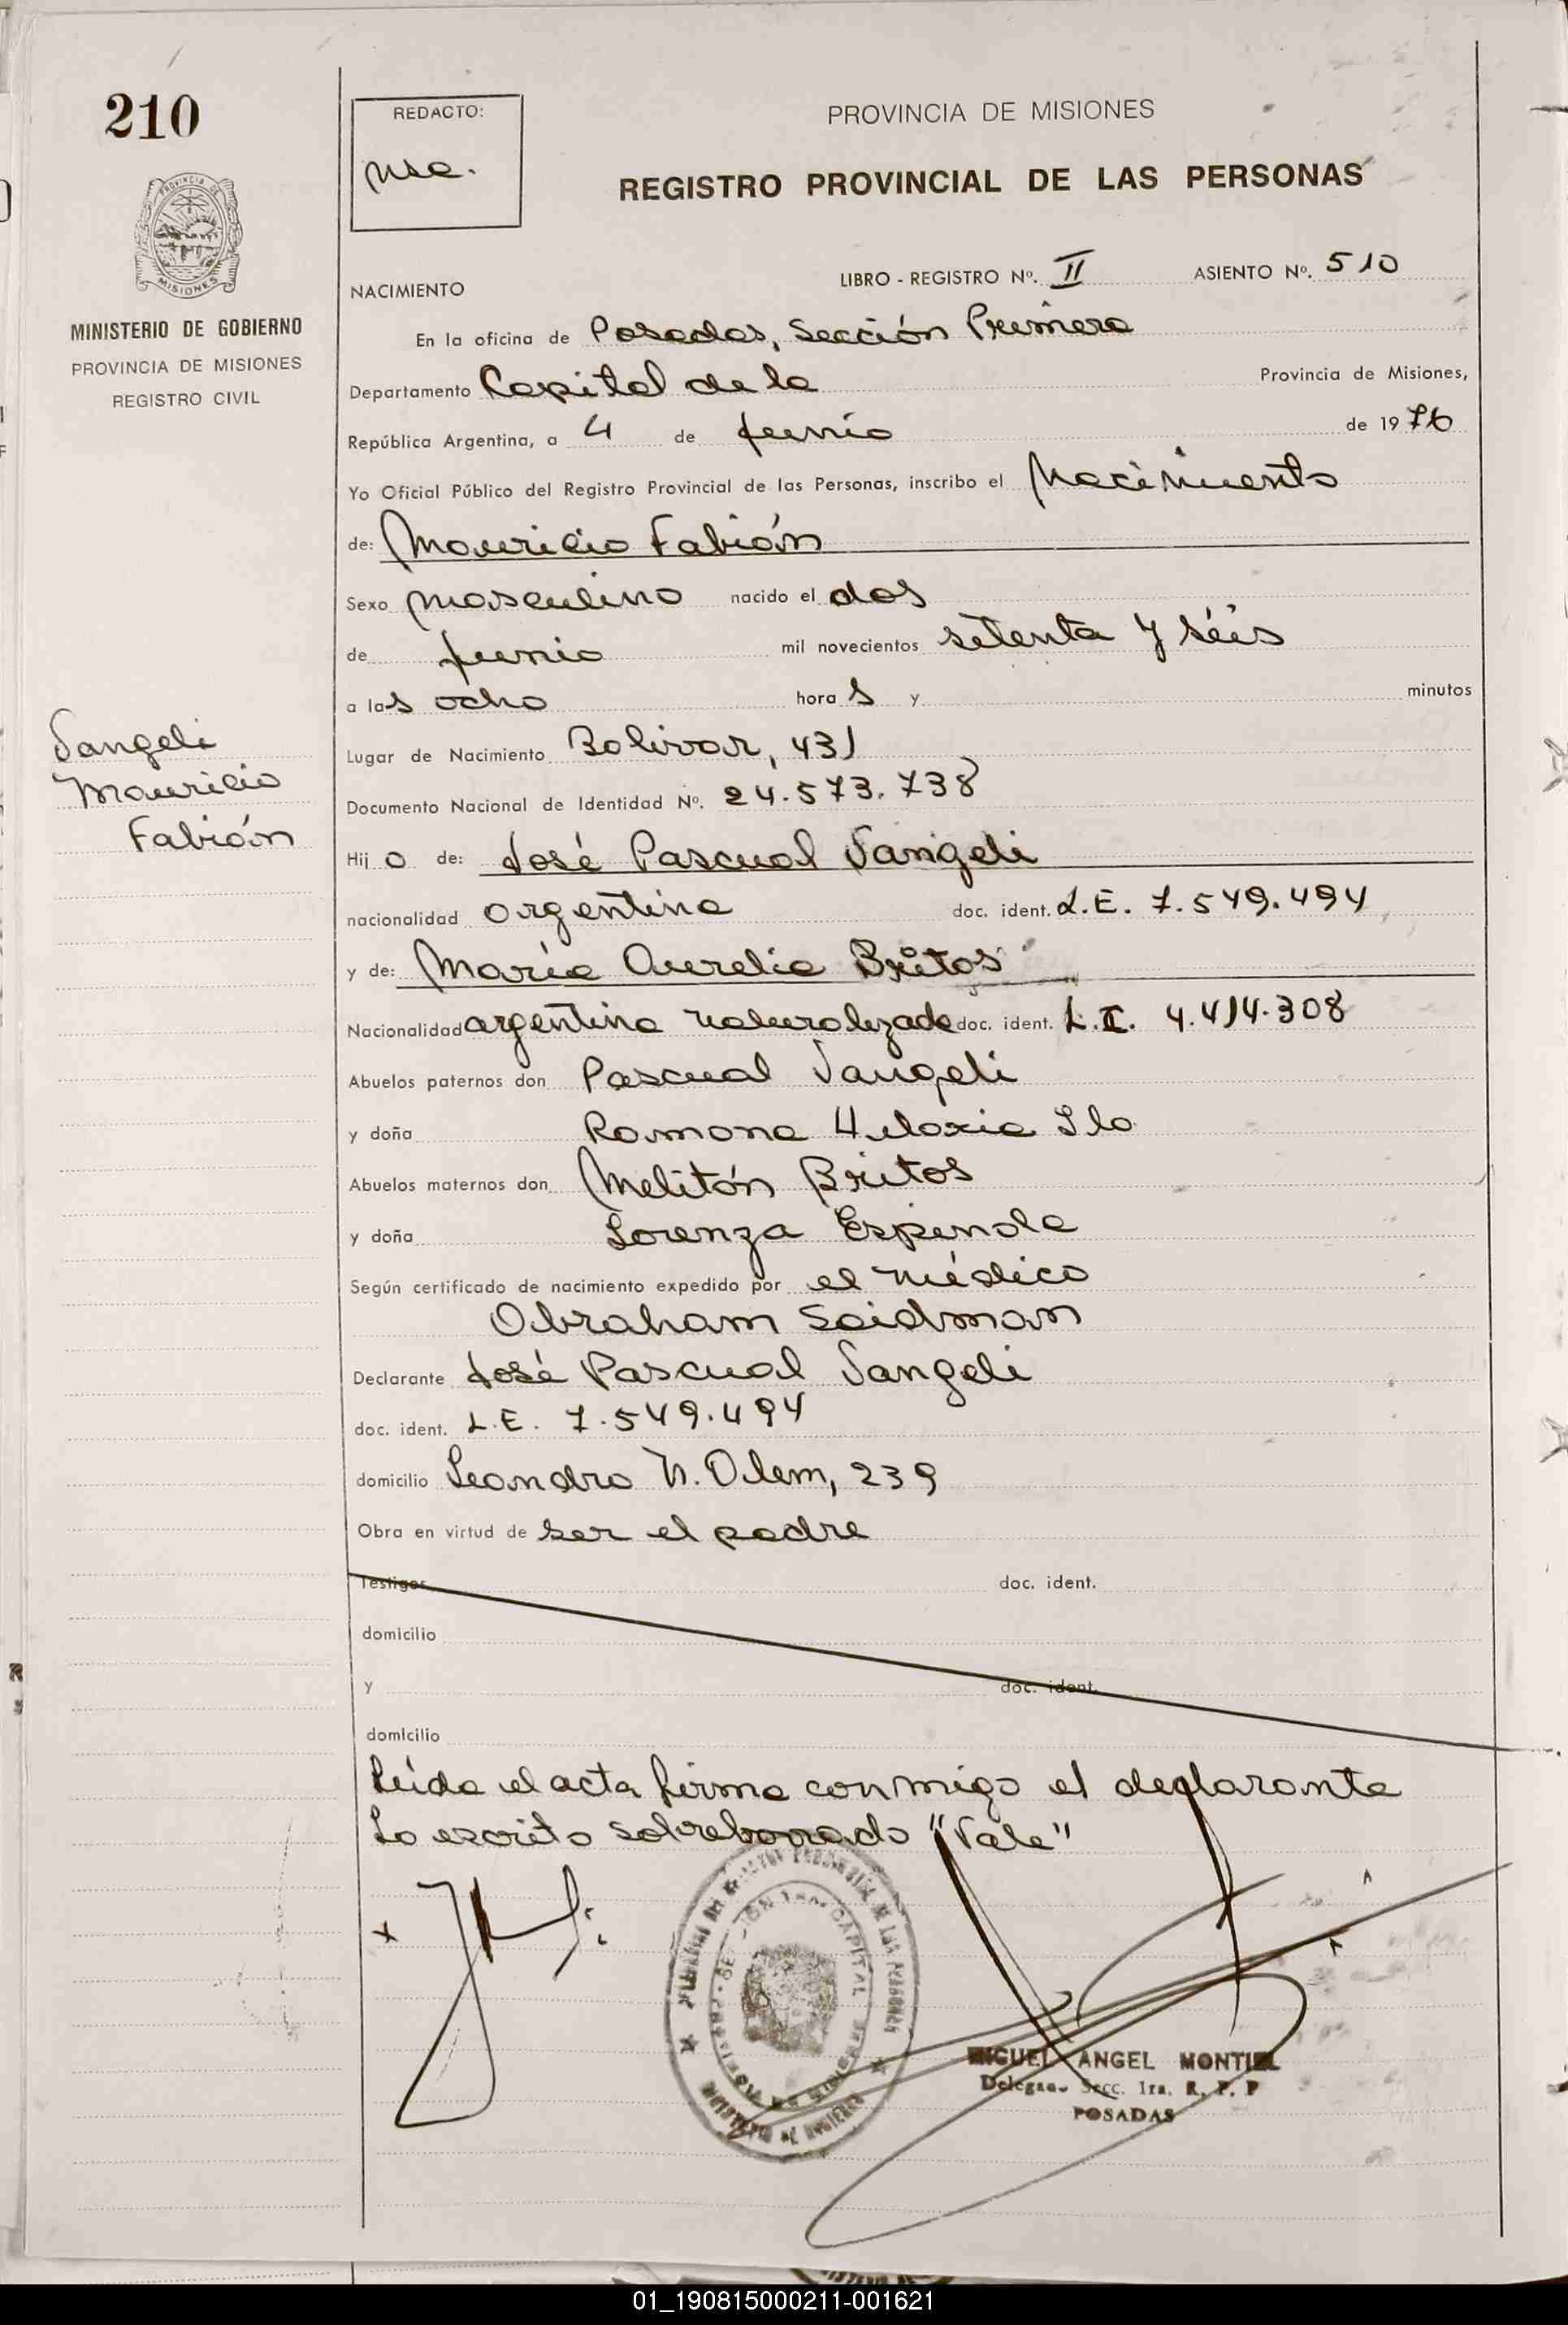 210
REDACTO:
PROVINCIA DE MISIONES
REGISTRO PROVINCIAL DE LAS PERSONAS
PROVINCIA DE
MISIONES
MINISTERIO DE GOBIERNO
PROVINCIA DE MISIONES
REGISTRO CIVIL
NACIMIENTO
LIBRO - REGISTRO Nº. II ASIENTO Nº. 510
En la oficina de Posadas, Sección Primera
Departamento Capital de la Provincia de Misiones,
República Argentina, a 4 de junio de 1976
Yo Oficial Público del Registro Provincial de las Personas, inscribo el Nacimiento
de: Mauricio Fabián
Sexo masculino nacido el dos
de junio mil novecientos setenta y séis
a las ocho horas y minutos
Sangeli
Mauricio
Fabián
Lugar de Nacimiento Bolivar, 431
Documento Nacional de Identidad Nº. 24.573.738
Hijo de: José Pascual Sangeli
nacionalidad argentina doc. ident. L.E. 7.549.494
y de: María Aurelia Britos
Nacionalidad argentina naturalizada doc. ident. L.C. 4.414.308
Abuelos paternos don Pascual Sangeli
y doña Ramona
Abuelos maternos don Melitón Britos
y doña Lorenza Espinola
Según certificado de nacimiento expedido por el médico
Abraham Saidman
Declarante José Pascual Sangeli
doc. ident. L.E. 7.549.494
domicilio Leandro N. Alem, 239
Obra en virtud de ser el padre
Testigos doc. ident.
domicilio
y doc. ident.
domicilio
Leída el acta firma conmigo el declarante
Lo escrito sobreborrado "Vale"
MIGUEL ANGEL MONTIEL
Secc. 1ra. R. P. P
POSADAS
01_190815000211-001621